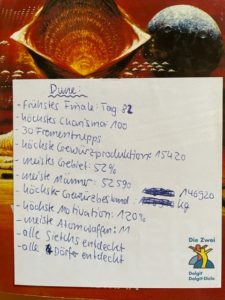 Dune:
- frühstes Finale: Tag 82
- höchstes Charisma 100
- 30 Frementrupps
- höchste Gewürzproduktion: 15420
- meistes Gebiet: 52%
- meiste Männer: 52590
- höchster Gewürzbestand: 146920 kg
- höchste Motivation: 120%
- meiste Atomwaffen: 11
- alle Sietchs entdeckt
- alle Dörfer entdeckt
Die Zwei
Dalgif
Dalgif-Dicio